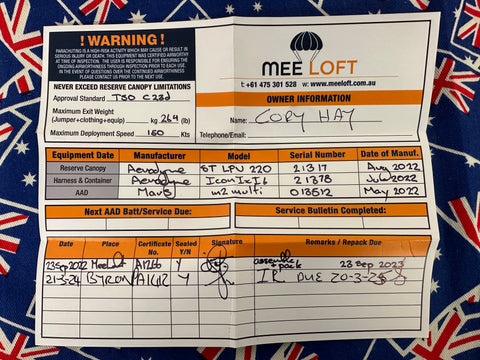 ! WARNING !
PARACHUTING IS A HIGH-RISK ACTIVITY WHICH MAY CAUSE OR RESULT IN
SERIOUS INJURY OR DEATH. THIS EQUIPMENT WAS CERTIFIED AIRWORTHY
AT TIME OF INSPECTION. THE USER IS RESPONSIBLE FOR ENSURING
THE ONGOING AIRWORTHINESS THROUGH INSPECTION PRIOR TO EACH USE.
IN THE EVENT OF QUESTIONS OR CONCERNS OVER THE CONTINUED AIRWORTHINESS
PLEASE CONTACT US PRIOR TO NEXT USE.
NEVER EXCEED RESERVE CANOPY LIMITATIONS
Approval Standard TSO C23d
Maximum Exit Weight
(Jumper+clothing+equip) kg 264 (lb)
Maximum Deployment Speed 160 Kts
MEE LOFT
t: +61 475 301 528 w: www.meeloft.com.au
OWNER INFORMATION
Name: CODY HAY
Telephone/Email:
Equipment Date Manufacturer Model Serial Number Date of Manuf.
Reserve Canopy Aerodyne ST LPV 220 21317 Aug 2022
Harness & Container Aerodyne Icon IxI6 21378 Jul 2022
AAD Mars m2 multi 013512 May 2022
Next AAD Batt/Service Due:
Service Bulletin Completed:
Date Place Certificate No. Sealed Y/N Signature Remarks / Repack Due
23 Sep 2022 Meeloft A1266 Y assemble + pack 23 Sep 2023
21-3-24 BYRON Y IR DUE 20-3-25